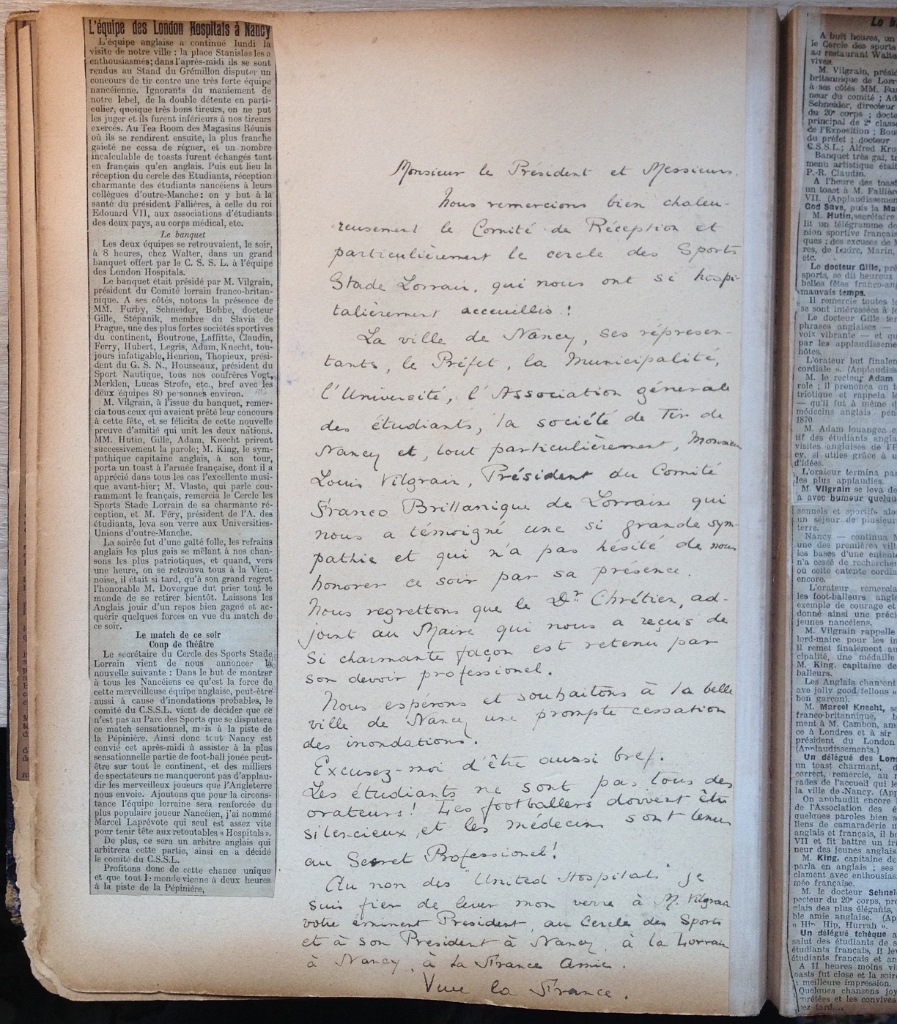 L'équipe des London Hospitals à Nancy
L'équipe anglaise a continué lundi la
visite de notre ville ; la place Stanislas les a
enthousiasmés ; dans l'après-midi ils se sont
rendus au Stand du Grémillon disputer un
concours de tir contre une très forte équipe
nancéienne. Ignorants du maniement de
notre lebel, de la double détente en parti-
culier, quoique très bons tireurs, on ne put
les juger et ils furent inférieurs à nos tireurs
exercés. Au Tea Room des Magasins Réunis
où ils se rendirent ensuite, la plus franche
gaieté ne cessa de régner, et un nombre
incalculable de toasts furent échangés tant
en français qu'en anglais. Puis eut lieu la
réception du cercle des Etudiants, réception
charmante des étudiants nancéiens à leurs
collègues d'outre-Manche ; on y but à la
santé du président Fallières, à celle du roi
Edouard VII, aux associations d'étudiants
des deux pays, au corps médical, etc.
Le banquet
Les deux équipes se retrouvaient, le soir,
à 8 heures, chez Walter, dans un grand
banquet offert par le C. S. S. L. à l'équipe
des London Hospitals.
Le banquet était présidé par M. Vilgrain,
président du Comité lorrain franco-britan-
nique. A ses côtés, notons la présence de
MM. Furby, Schneider, Bobbe, docteur
Gille, Stépanik, membre du Slavia de
Prague, une des plus fortes sociétés sportives
du continent, Boutroue, Laffitte, Claudin,
Ferry, Hubert, Legris, Adam, Knecht, tou-
jours infatigable, Henrion, Thopieux, prési-
dent du G. S. N., Housseaux, président du
Sport Nautique, tous nos confrères Vogt,
Merklen, Lucas Strofe, etc., bref avec les
deux équipes 80 personnes environ.
M. Vilgrain, à l'issue du banquet, remer-
cia tous ceux qui avaient prêté leur concours
à cette fête, et se félicita de cette nouvelle
preuve d'amitié qui unit les deux nations.
MM. Hutin, Gille, Adam, Knecht prirent
successivement la parole; M. King, le sym-
pathique capitaine anglais, à son tour,
porta un toast à l'armée française, dont il a
apprécié dans tous les cas l'excellente musi-
que avant-hier; M. Vlasto, qui parle cou-
ramment le français, remercia le Cercle les
Sports Stade Lorrain de sa charmante ré-
ception, et M. Féry, président de l'A. des
étudiants, leva son verre aux Universités-
Unions d'outre-Manche.
La soirée fut d'une gaîté folle, les refrains
anglais les plus gais se mêlant à nos chan-
sons les plus patriotiques, et quand, vers
une heure, on se retrouva tous à la Vien-
noise, il était si tard, qu'à son grand regret
l'honorable M. Dovergne dut prier tout le
monde de se retirer bientôt. Laissons les
Anglais jouir d'un repos bien gagné et ac-
quérir quelques forces en vue du match de
ce soir.
Le match de ce soir
Coup de théâtre
Le secrétaire du Cercle des Sports Stade
Lorrain vient de nous annoncer la
nouvelle suivante : Dans le but de montrer
à tous les Nancéiens ce qu'est la force de
cette merveilleuse équipe anglaise, peut-être
aussi à cause d'inondations probables, le
comité du C.S.S.L. vient de décider que ce
n'est pas au Parc des Sports que se disputera
ce match sensationnel, mais à la piste de
la Pépinière. Ainsi donc tout Nancy est
convié cet après-midi à assister à la plus
sensationnelle partie de foot-ball jouée peut-
être sur tout le continent, et des milliers
de spectateurs ne manqueront pas d'applau-
dir les merveilleux joueurs que l'Angleterre
nous envoie. Ajoutons que pour la circons-
tance l'équipe lorraine sera renforcée du
plus populaire joueur Nancéien, j'ai nommé
Marcel Laprévote qui seul est assez vite
pour tenir tête aux redoutables « Hospitals ».
De plus, ce sera un arbitre anglais qui
arbitrera cette partie, ainsi en a décidé
le comité du C.S.S.L.
Profitons donc de cette chance unique
et que tout le monde vienne à deux heures
à la piste de la Pépinière,
Monsieur le Président et Messieurs.
Nous remercions bien chaleu-
reusement le Comité de Réception et
particulièrement le cercle des Sports
Stade Lorrain, qui nous ont si hospi-
talièrement acceuillis !
La ville de Nancy, ses représen-
tants, le Préfet, la Municipalité,
l'Université, l'Association générale
des étudiants, la société de Tir de
Nancy et, tout particulièrement, Monsieur
Louis Vilgrain, Président du Comité
Franco Brittanique de Lorraine qui
nous a témoigné une si grande sym-
pathie et qui n'a pas hésité de nous
honorer ce soir par sa présence.
Nous regrettons que le Dr Chrétien, ad-
joint au Maire qui nous a reçus de
si charmante façon est retenu par
son devoir professionel.
Nous espérons et souhaitons à la belle
ville de Nancy une prompte cessation
des inondations.
Excusez-moi d'être aussi bref.
Les étudiants ne sont pas tous des
orateurs! Les footballers doivent être
silencieux, et les médecins sont tenus
au Secret Professionel!
Au nom des "United Hospitals" je
suis fier de lever mon verre à M. Vilgrain
votre éminent Président, au Cercle des Sports
et à son President à Nancy, à la Lorraine
à Nancy, à la France Amie.
Vive la France.
A huit heures, un
le Cercle des sports
au restaurant Walte
vives.
M. Vilgrain, prési
britannique de Lorr
à ses côtés MM. Fur
neur du comité ; Ad
Schneider, directeur
du 20e corps ; docte
principal de 2e classe
de l'Exposition ; Bou
du préfet ; docteur
C.S.S.L.; Alfred Kro
Banquet très gai, tr
menu artistique était
P.-R. Claudin.
A l'heure des toast
un toast à M. Falliè
VII. (Applaudissemen
God Save, puis la Ma
M. Hutin, secrétaire
lit un télégramme d
nion sportive français
ques ; des excuses de M
res, de Lodre, Marin,
etc.
Le docteur Gille, pré
sports, se dit heureux
belles fêtes franco-ang
mauvais temps.
Il remercie toutes l
se sont intéressées à l
Le docteur Gille ter
phrases anglaises —
voix vibrante — et qu
par les applaudisseme
hôtes.
L'orateur but finalem
cordiale ». (Applaudiss
M. le recteur Adam
role ; il prononça un t
triotique et rappela l
— qu'il fut à même d
médecins anglais pen
1870.
M. Adam louangea e
tif des étudiants angla
visites anglaises de l'E
cy, si utiles grâce à u
d'idées.
L'orateur termina par
les plus applaudies.
M. Vilgrain se leva de
à avec humour quelqu
sonnels et sportifs alo
un séjour de plusieur
terre.
Nancy — continua M
une des premières vill
les bases d'une entent
n'a cessé de recherche
où cette entente cordia
encore.
L'orateur remercia
les foot-balleurs angl
exemple de courage et
donné ainsi une préci
jeunes nancéiens.
M. Vilgrain rappelle
lord-maire pour les i
Il remet finalement a
cipalité, une médaille
M. King, capitaine de
balleurs.
Les Anglais chantent
ave jolly good fellous »
bon garçon).
M. Marcel Knecht, se
franco-britannique,
ment à M. Cambon, am
ce à Londres et à sir
président du London
(Applaudissements.)
Un délégué des Lon
un toast charmant, d
correct, remercie, au n
rades de l'accueil qui le
la ville de Nancy. (App
On applaudit encore
de l'Association des é
quelques paroles bien s
liens de camaraderie
anglais et français, il b
VII et fit battre un tri
neur des jeunes anglais
M. King, capitaine de
parla en anglais ; ses
clament avec enthousias
mée française.
M. le docteur Schnei
pecteur du 20e corps, pre
glais des plus élégants,
ble amie anglaise. (Ap
« Hip, Hip, Hurrah ».
Un délégué tchèque a
salut des étudiants de
étudiants français, il le
étudiants français et an
A 11 heures moins vi
oasts fut close et la soiré
meilleure impression.
Quelques chansons joy
prêtées et les convives